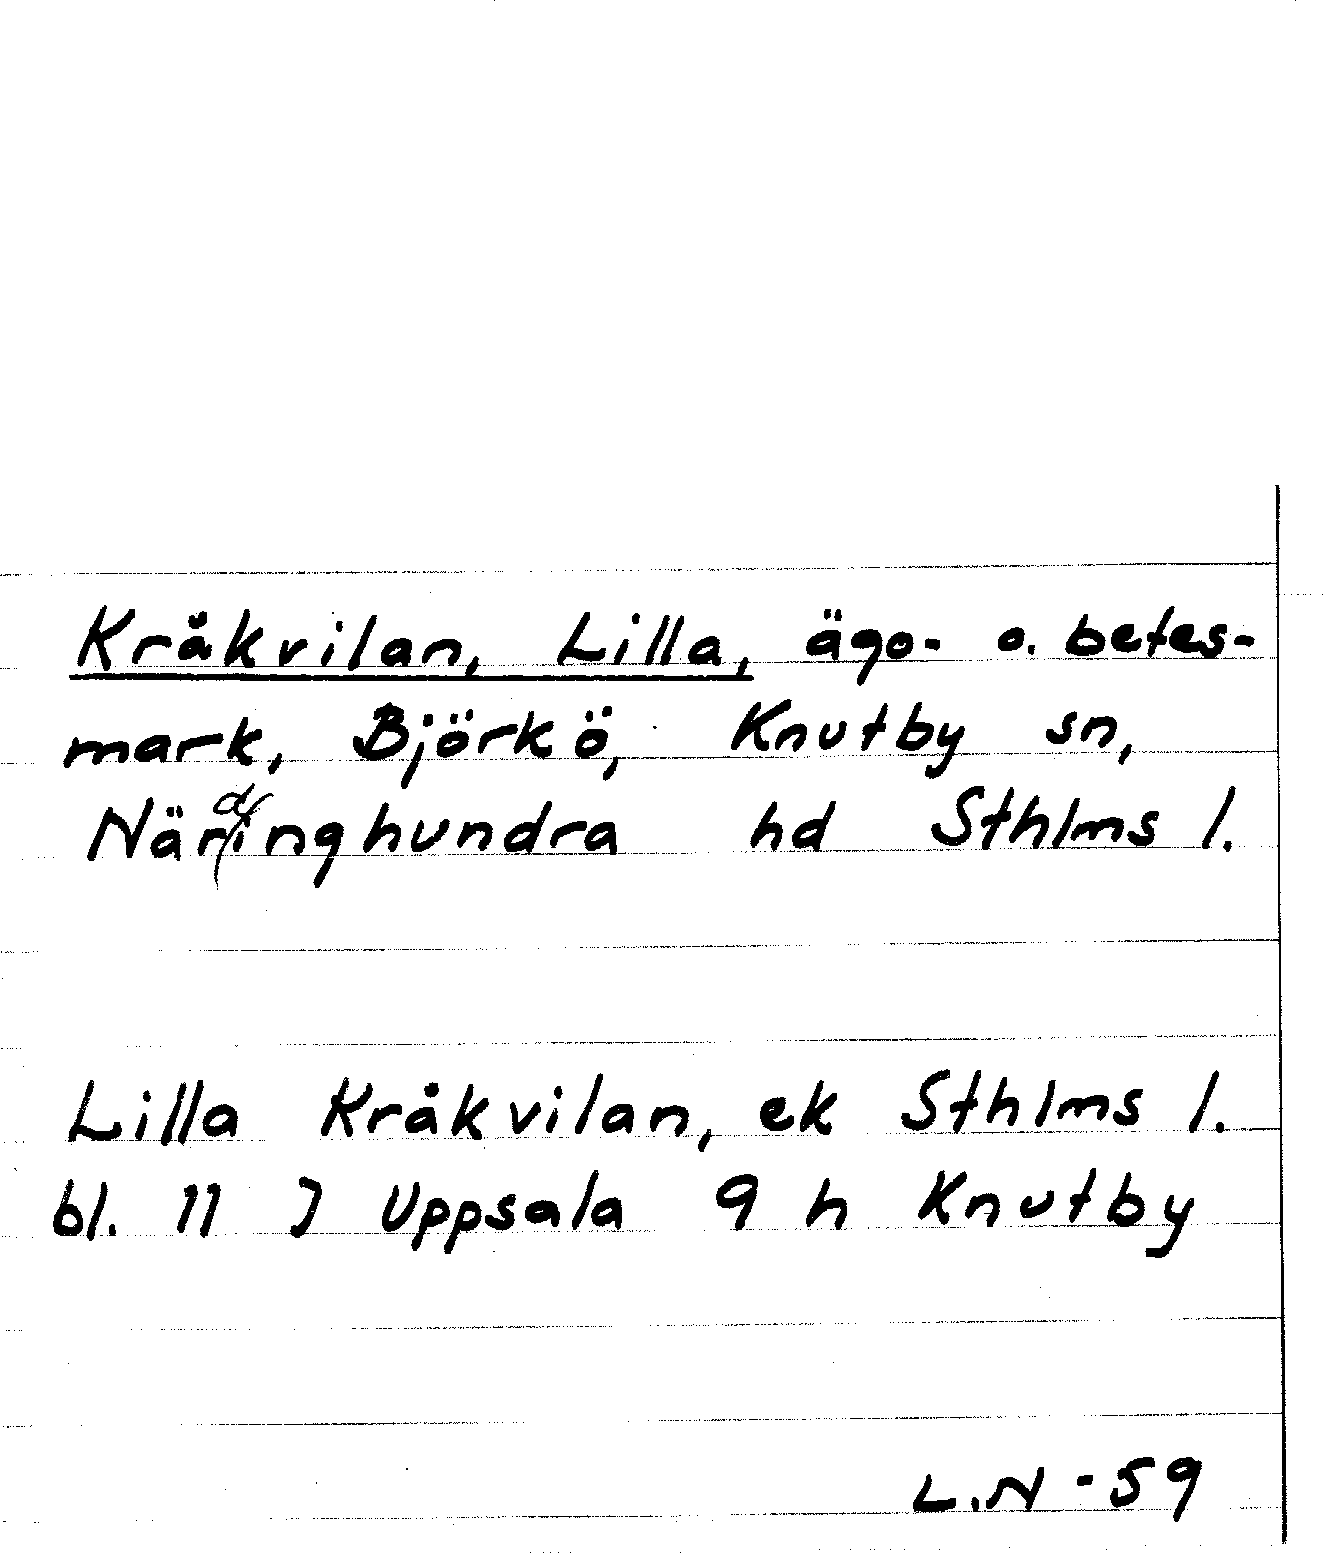 Kråkvilan, Lilla, ägo- o. betes-
mark, Björkö, Knutby sn,
Närdinghundra hd Sthlms l.
Lilla Kråkvilan, ek Sthlms l.
bl. 11 J Uppsala 9 h Knutby
L.N -59